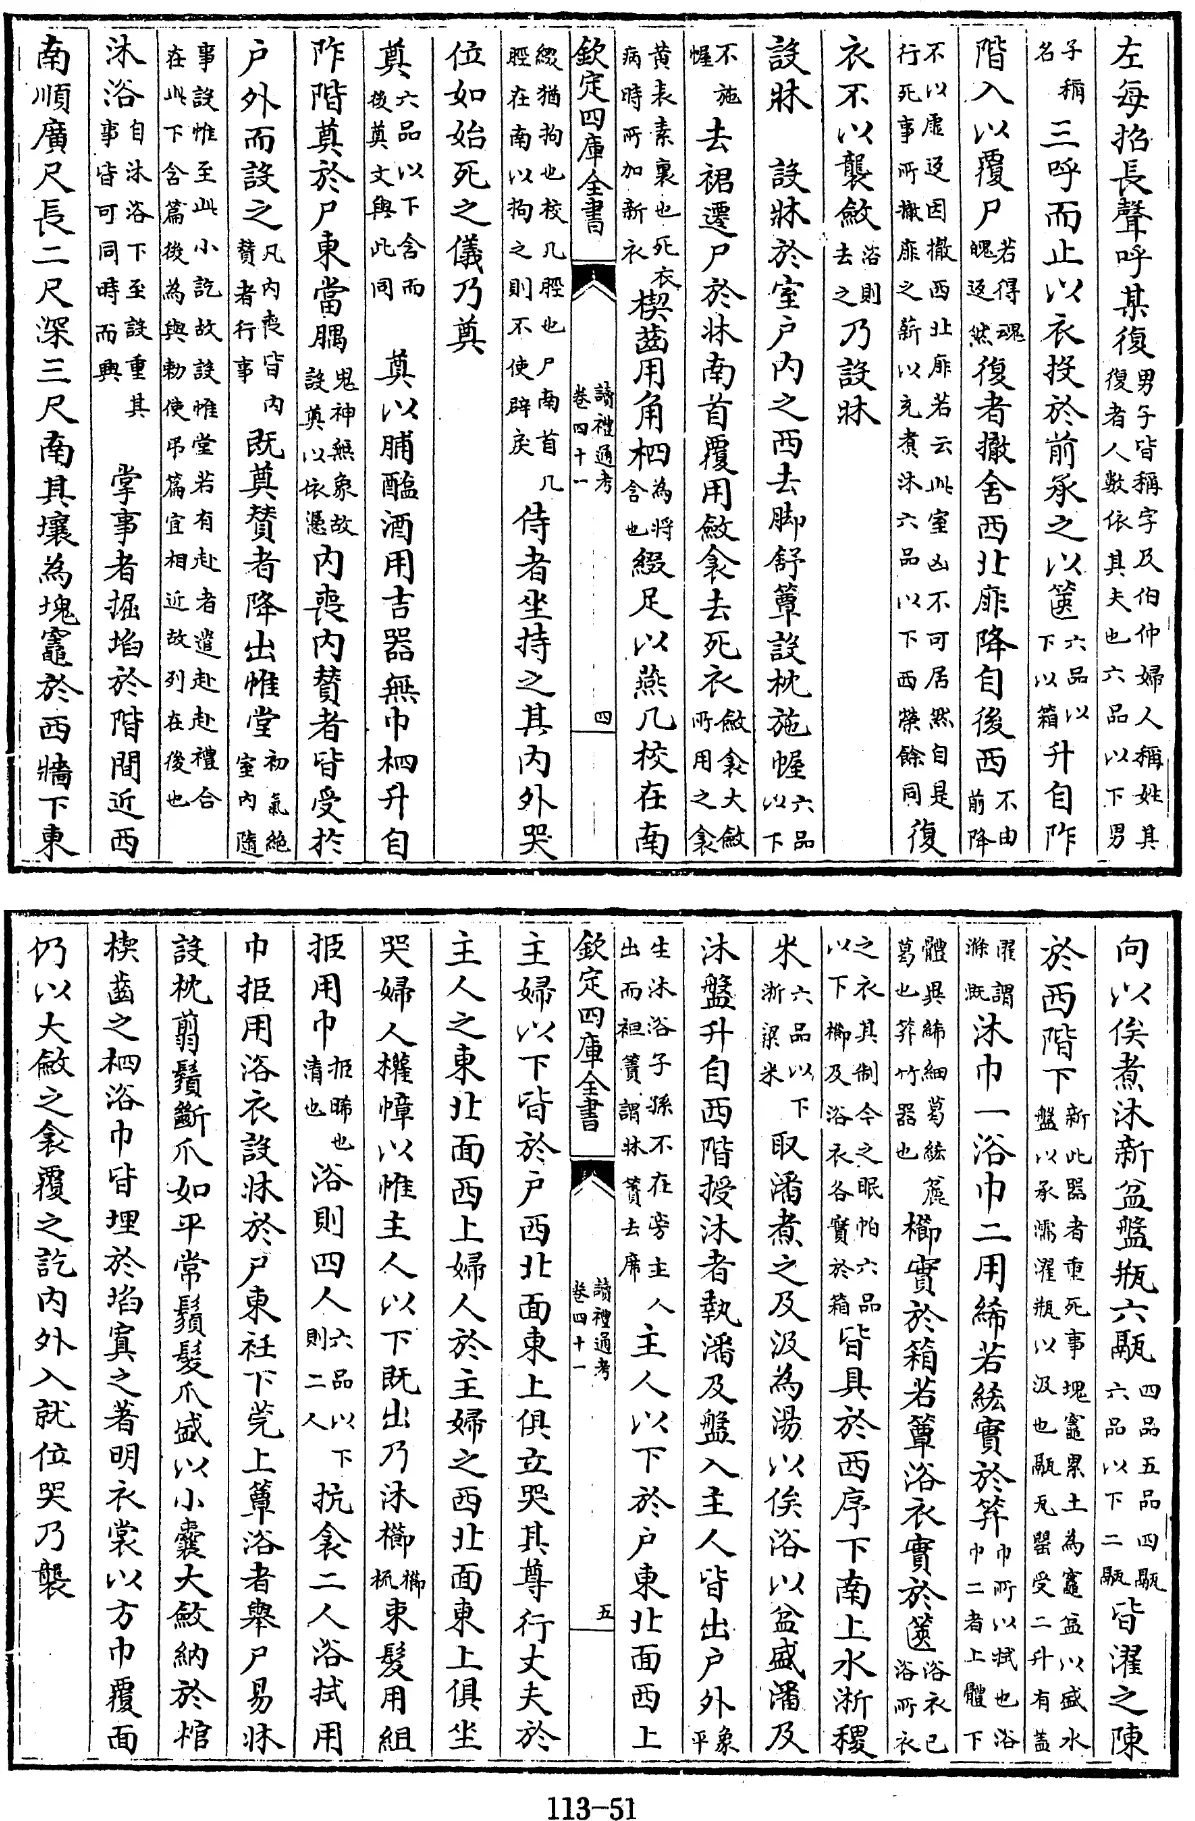 左每招長聲呼某復男子皆稱字及伯仲婦人稱姓其復者人數依其夫也六品以下男
子稱名三呼而止以衣投於前承之以篋六品以下以箱升自阼
階入以覆尸若得魂魄返然復者撤舍西北厞降自後西不由前降
不以虛返因撤西北厞若云此室凶不可居然自是行死事所撤厞之薪以充煮沐六品以下西榮餘同復
衣不以襲斂浴則去之乃設牀
設牀　設牀於室户内之西去脚舒簟設枕施幄六品以下
不施幄去裙遷尸於牀南首覆用斂衾去死衣斂衾大斂所用之衾
黄表素裏也死衣病時所加新衣楔齒用角柶為將含也綴足以燕几校在南
欽定四庫全書　讀禮通考卷四十一　四
綴猶拘也校几脛也尸南首几脛在南以拘之則不使辟戾侍者坐持之其内外哭
位如始死之儀乃奠
奠六品以下含而後奠文與此同　奠以脯醢酒用吉器無巾柶升自
阼階奠於尸東當腢鬼神無象故設奠以依憑内喪内贊者皆受於
户外而設之凡内喪皆内贊者行事既奠贊者降出帷堂初氣絶室内隨
事設帷至此小訖故設帷堂若有赴者遣赴赴禮合在此下含篇後為與勅使弔篇宜相近故列在後也
沐浴自沐浴下至設重其事皆可同時而興　掌事者掘埳於階間近西
南順廣尺長二尺深三尺南其壤為塊竈於西牆下東
向以俟煮沐新盆盤瓶六鬲四品五品四鬲六品以下二鬲皆濯之陳
於西階下新此器者重死事塊竈累土為竈盆以盛水盤以承濡濯瓶以汲也鬲瓦罌受二升有蓋
濯謂滌溉沐巾一浴巾二用絺若綌實於笲巾所以拭也浴巾二者上體下
體異絺細葛綌麄葛也笲竹器也櫛實於箱若簟浴衣實於篋浴衣已浴所衣
之衣其制今之眠帕六品以下櫛及浴衣各實於箱皆具於西序下南上水淅稷
米六品以下淅梁米取潘煮之及汲為湯以俟浴以盆盛潘及
沐盤升自西階授沐者執潘及盤入主人皆出户外象平
生沐浴子孫不在旁主人出而袒簀謂牀簀去席主人以下於户東北面西上
欽定四庫全書　讀禮通考卷四十一　五
主婦以下皆於户西北面東上俱立哭其尊行丈夫於
主人之東北面西上婦人於主婦之西北面東上俱坐
哭婦人權幛以帷主人以下既出乃沐櫛櫛梳束髮用組
挋用巾挋晞也清也浴則四人六品以下則二人抗衾二人浴拭用
巾挋用浴衣設牀於尸東衽下莞上簟浴者舉尸易牀
設枕翦鬚斷爪如平常鬚髮爪盛以小囊大斂納於棺
楔齒之柶浴巾皆埋於埳寘之著明衣裳以方巾覆面
仍以大斂之衾覆之訖内外入就位哭乃襲
113-51